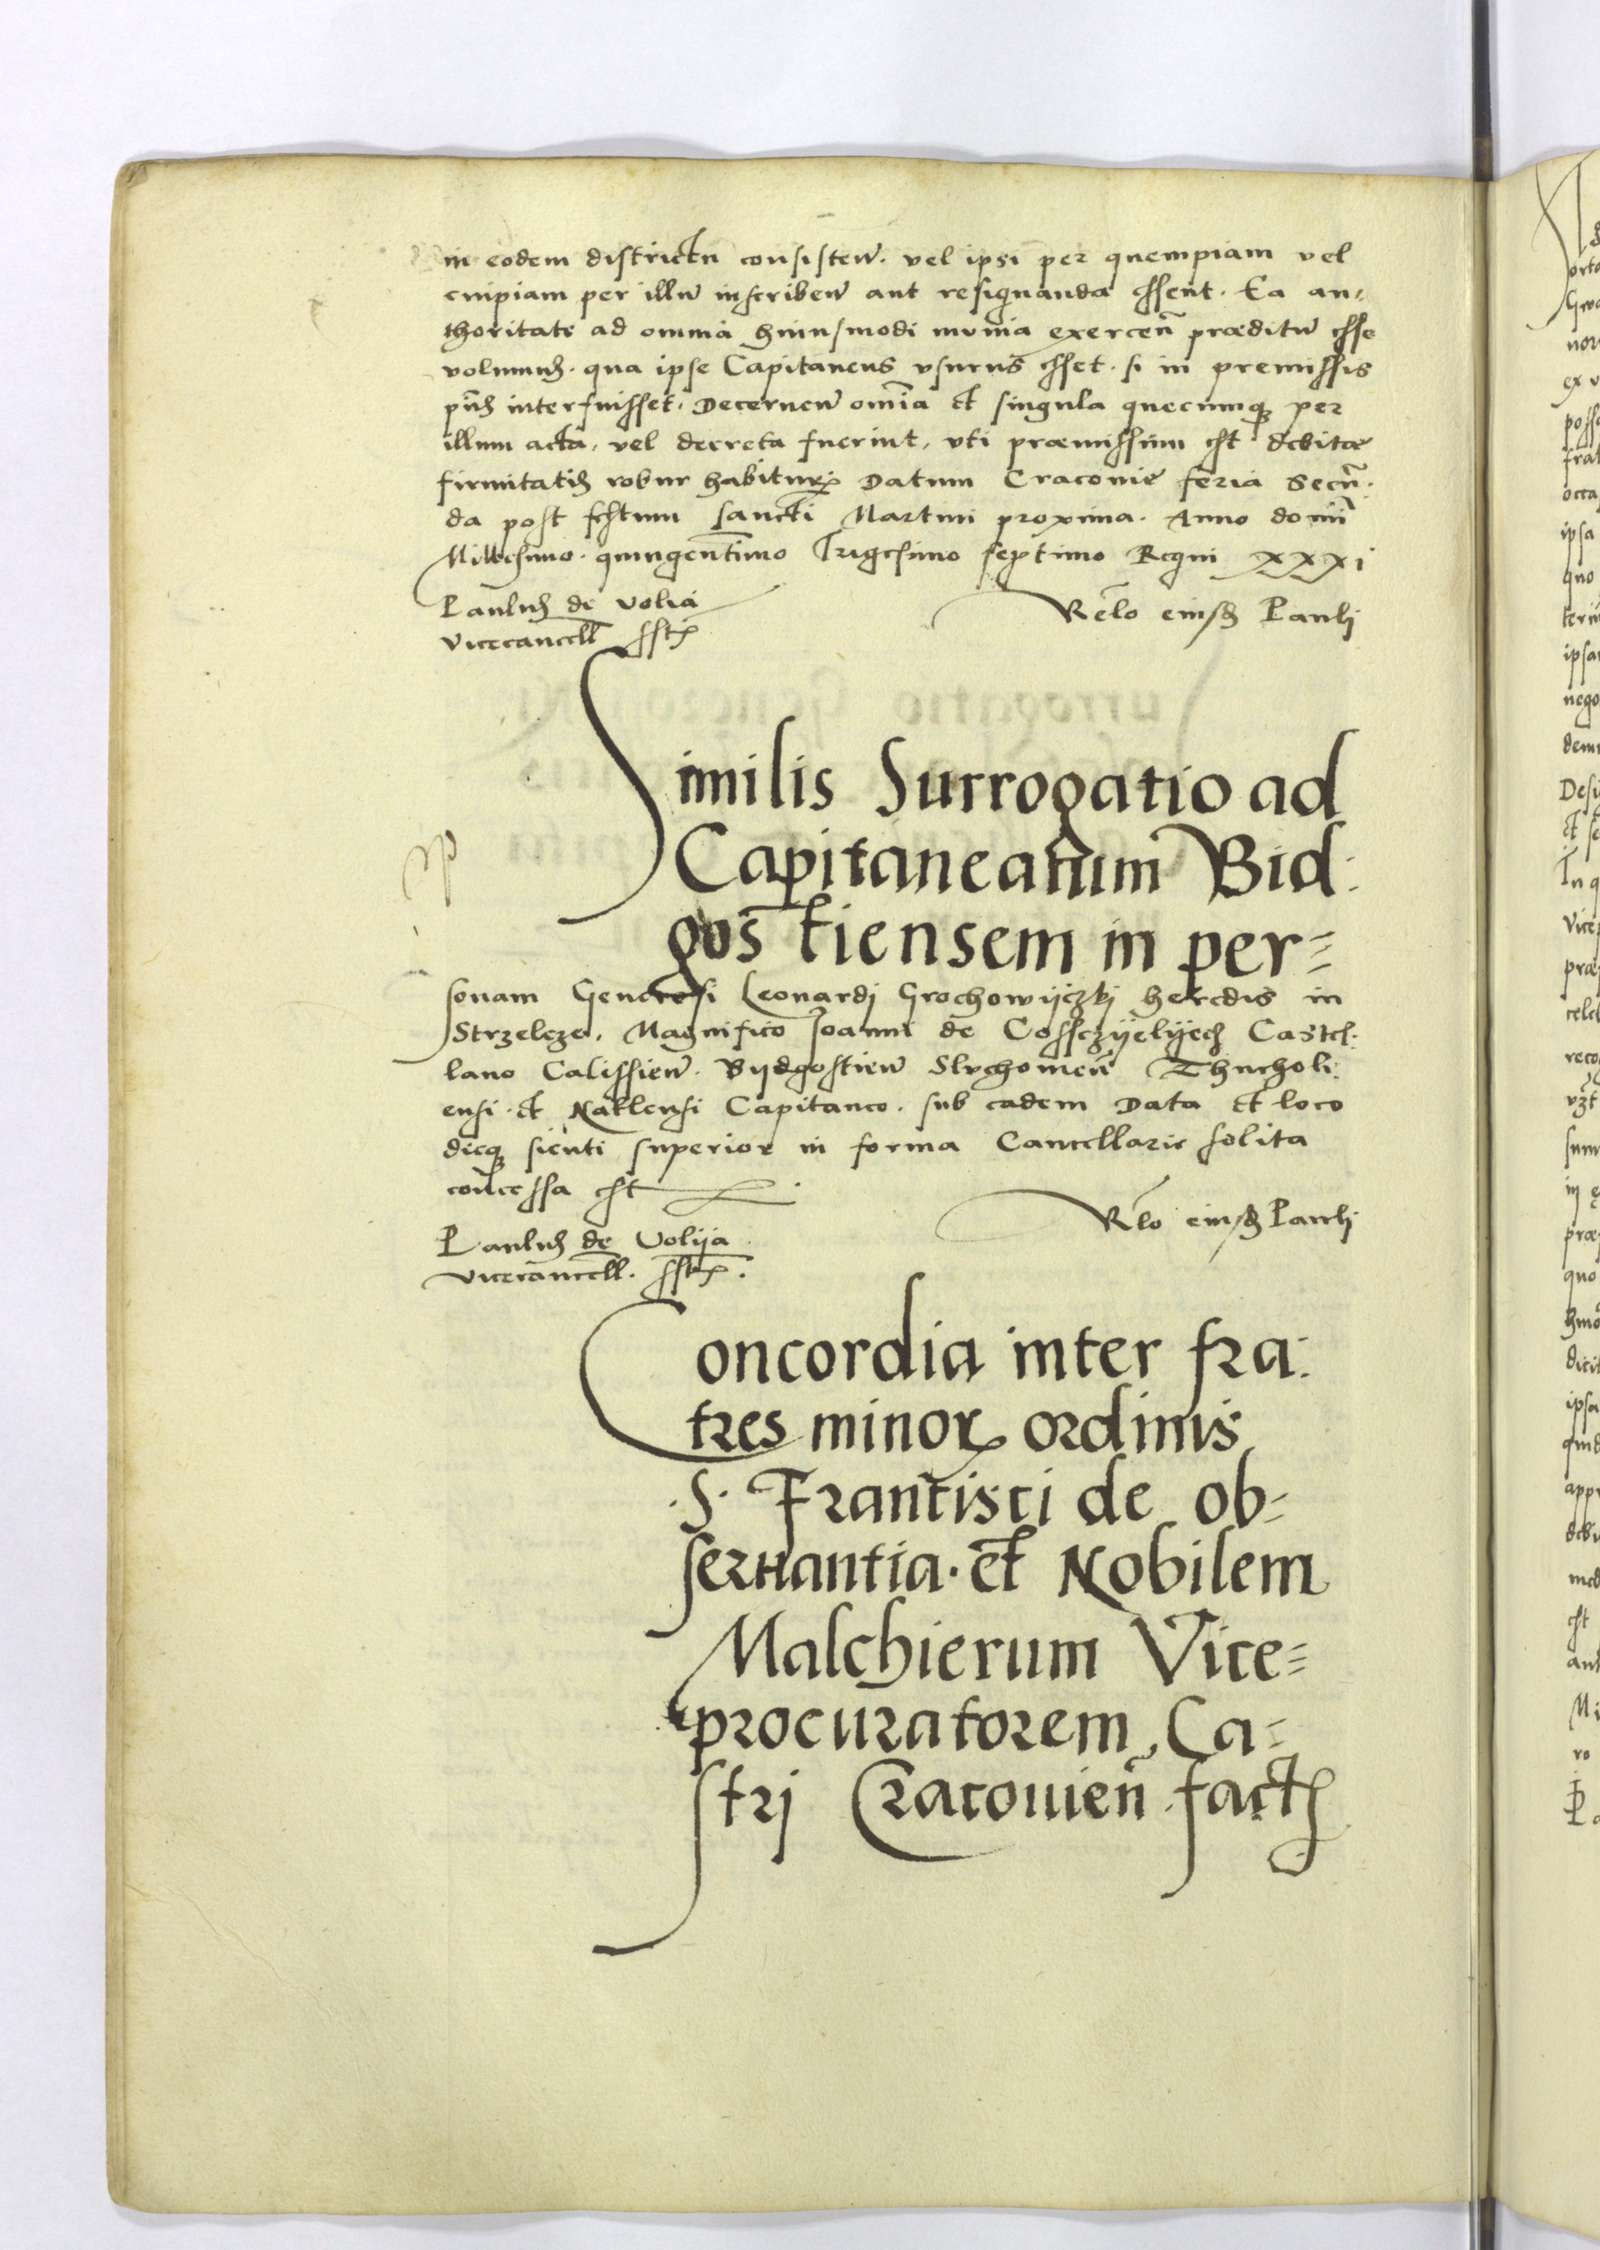 in eodem districtu consisteñ. vel ipsi per quempiam vel
cuipiam per illũ inscribeñ aut resignanda essent. Ea au-
thoritate ad omnia huiusmodi munia exerceñ præditũ esse
volumus. qua ipse Capitaneus vsurus esset. si in premissis
pñs interfuisset. Decerneñ omĩa et singula quecumq per
illum acta, vel decreta fuerint, vti præmissum est debitæ
firmitatis robur habitur Datum Cracovie feria Secũ-
da post festum sancti Martini proxima. Anno domĩ
Millesimo. quingentĩmo Trigesimo septimo Regni XXXI
Paulus de Volia
Vicecancell sst
Relo eiusd Pauli
Similis Surrogatio ad
Capitaneatum Bid-
gostiensem in per-
sonam Generosi Leonardj Grochowijczkj heredis in
Strzelcze. Magnifico Joanni de Cossczyelyecz Castel-
lano Calissieñ. Bydgostieñ Slvchomeñ Thucholi-
ensi. et Naklensi Capitaneo. sub eadem Data et loco
dieq sicuti superior in forma Cancellarie solita
concessa est
Rlo eiusd Pauli
Paulus de Volija
Vicecancell. sst.
Concordia inter fra-
tres minor ordinis
.S. Francisci de ob-
seruantia. et Nobilem
Malchierum Vice-
procuratorem Ca-
strj Cracovieñ. fact